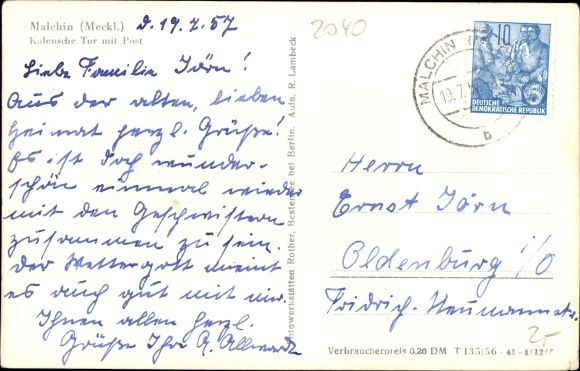 Malchin (Meckl.) d. 19.7.57
Kalensche Tor mit Post
Liebe Familie Jörn!
Aus der alten, lieben
Heimat herzl. Grüße!
Es ist doch wunder-
schön einmal wieder
mit den Geschwistern
zusammen zu sein.
Der Wettergott meint
es auch gut mit mir.
Ihnen allen herzl.
Grüße Ihr A. Allwardt
Fotowerkstätten Rother, Bestensee bei Berlin. Aufn. R. Lambeck
2040
MALCHIN
19.7.5
b
10
DEUTSCHE
DEMOKRATISCHE REPUBLIK
Herrn
Ernst Jörn
Oldenburg i/O
Fridrich-Neumannstr.
2,-
Verbraucherpreis 0,20 DM T 135/56 - 41 - 1/12/7